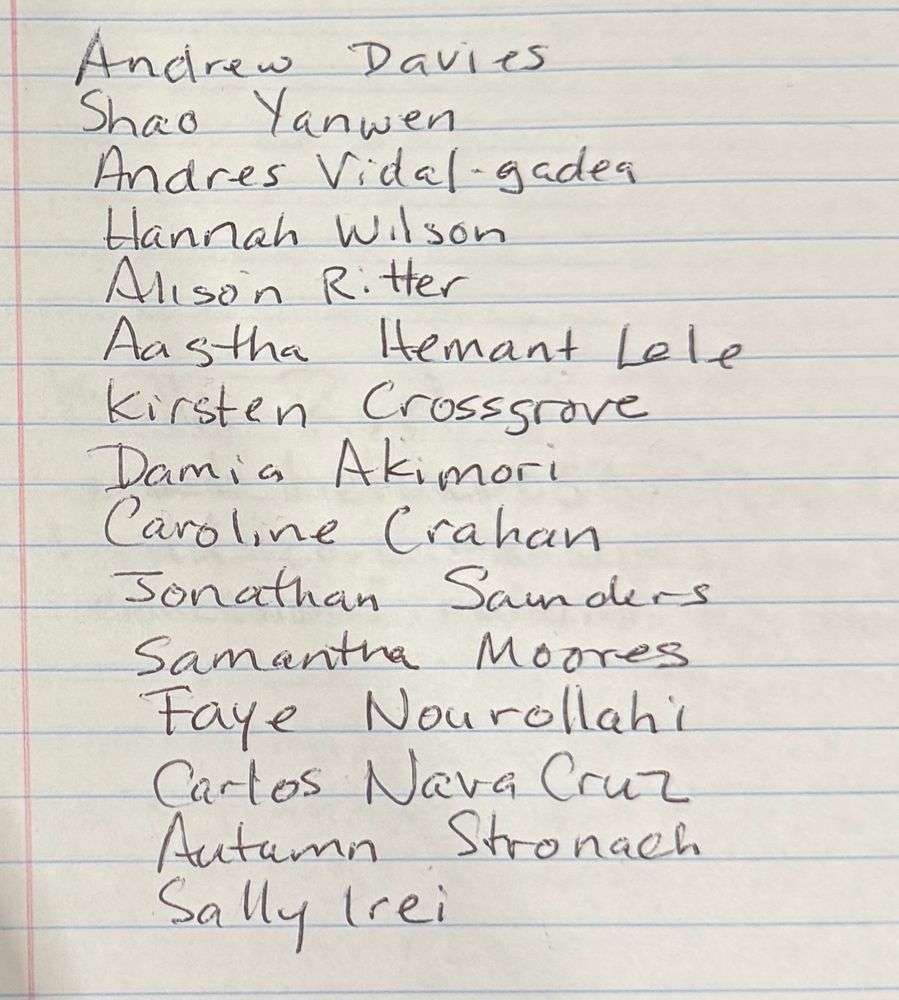 Andrew Davies
Shao Yanwen
Andres Vidal-gadea
Hannah Wilson
Alison Ritter
Aastha Hemant Lele
Kirsten Crossgrove
Damia Akimori
Caroline Crahan
Jonathan Saunders
Samantha Moores
Faye Nourollahi
Carlos Nava Cruz
Autumn Stronach
Sally Irei